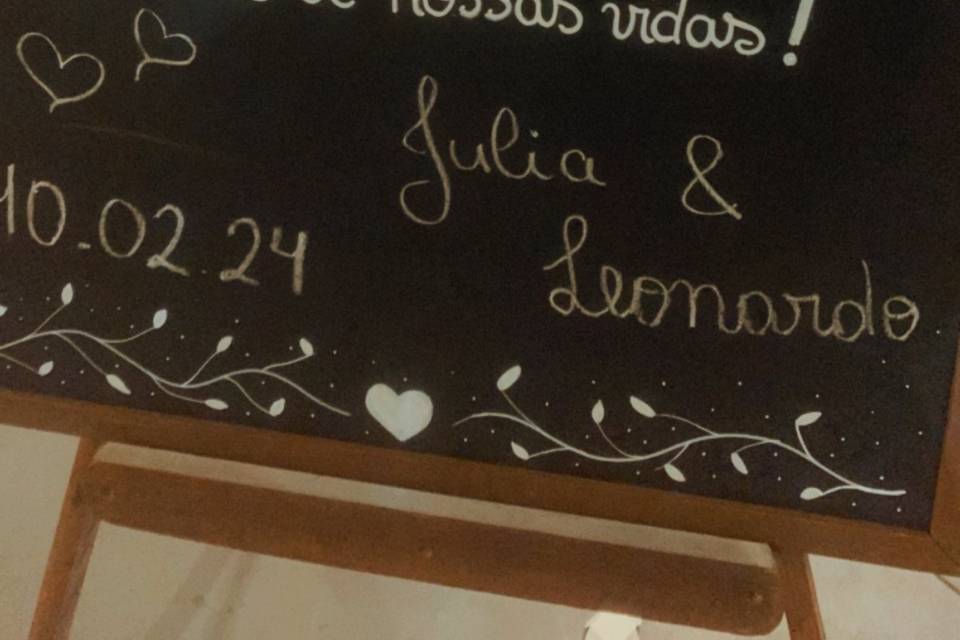 nossas vidas!
Julia &
Leonardo
10.02.24